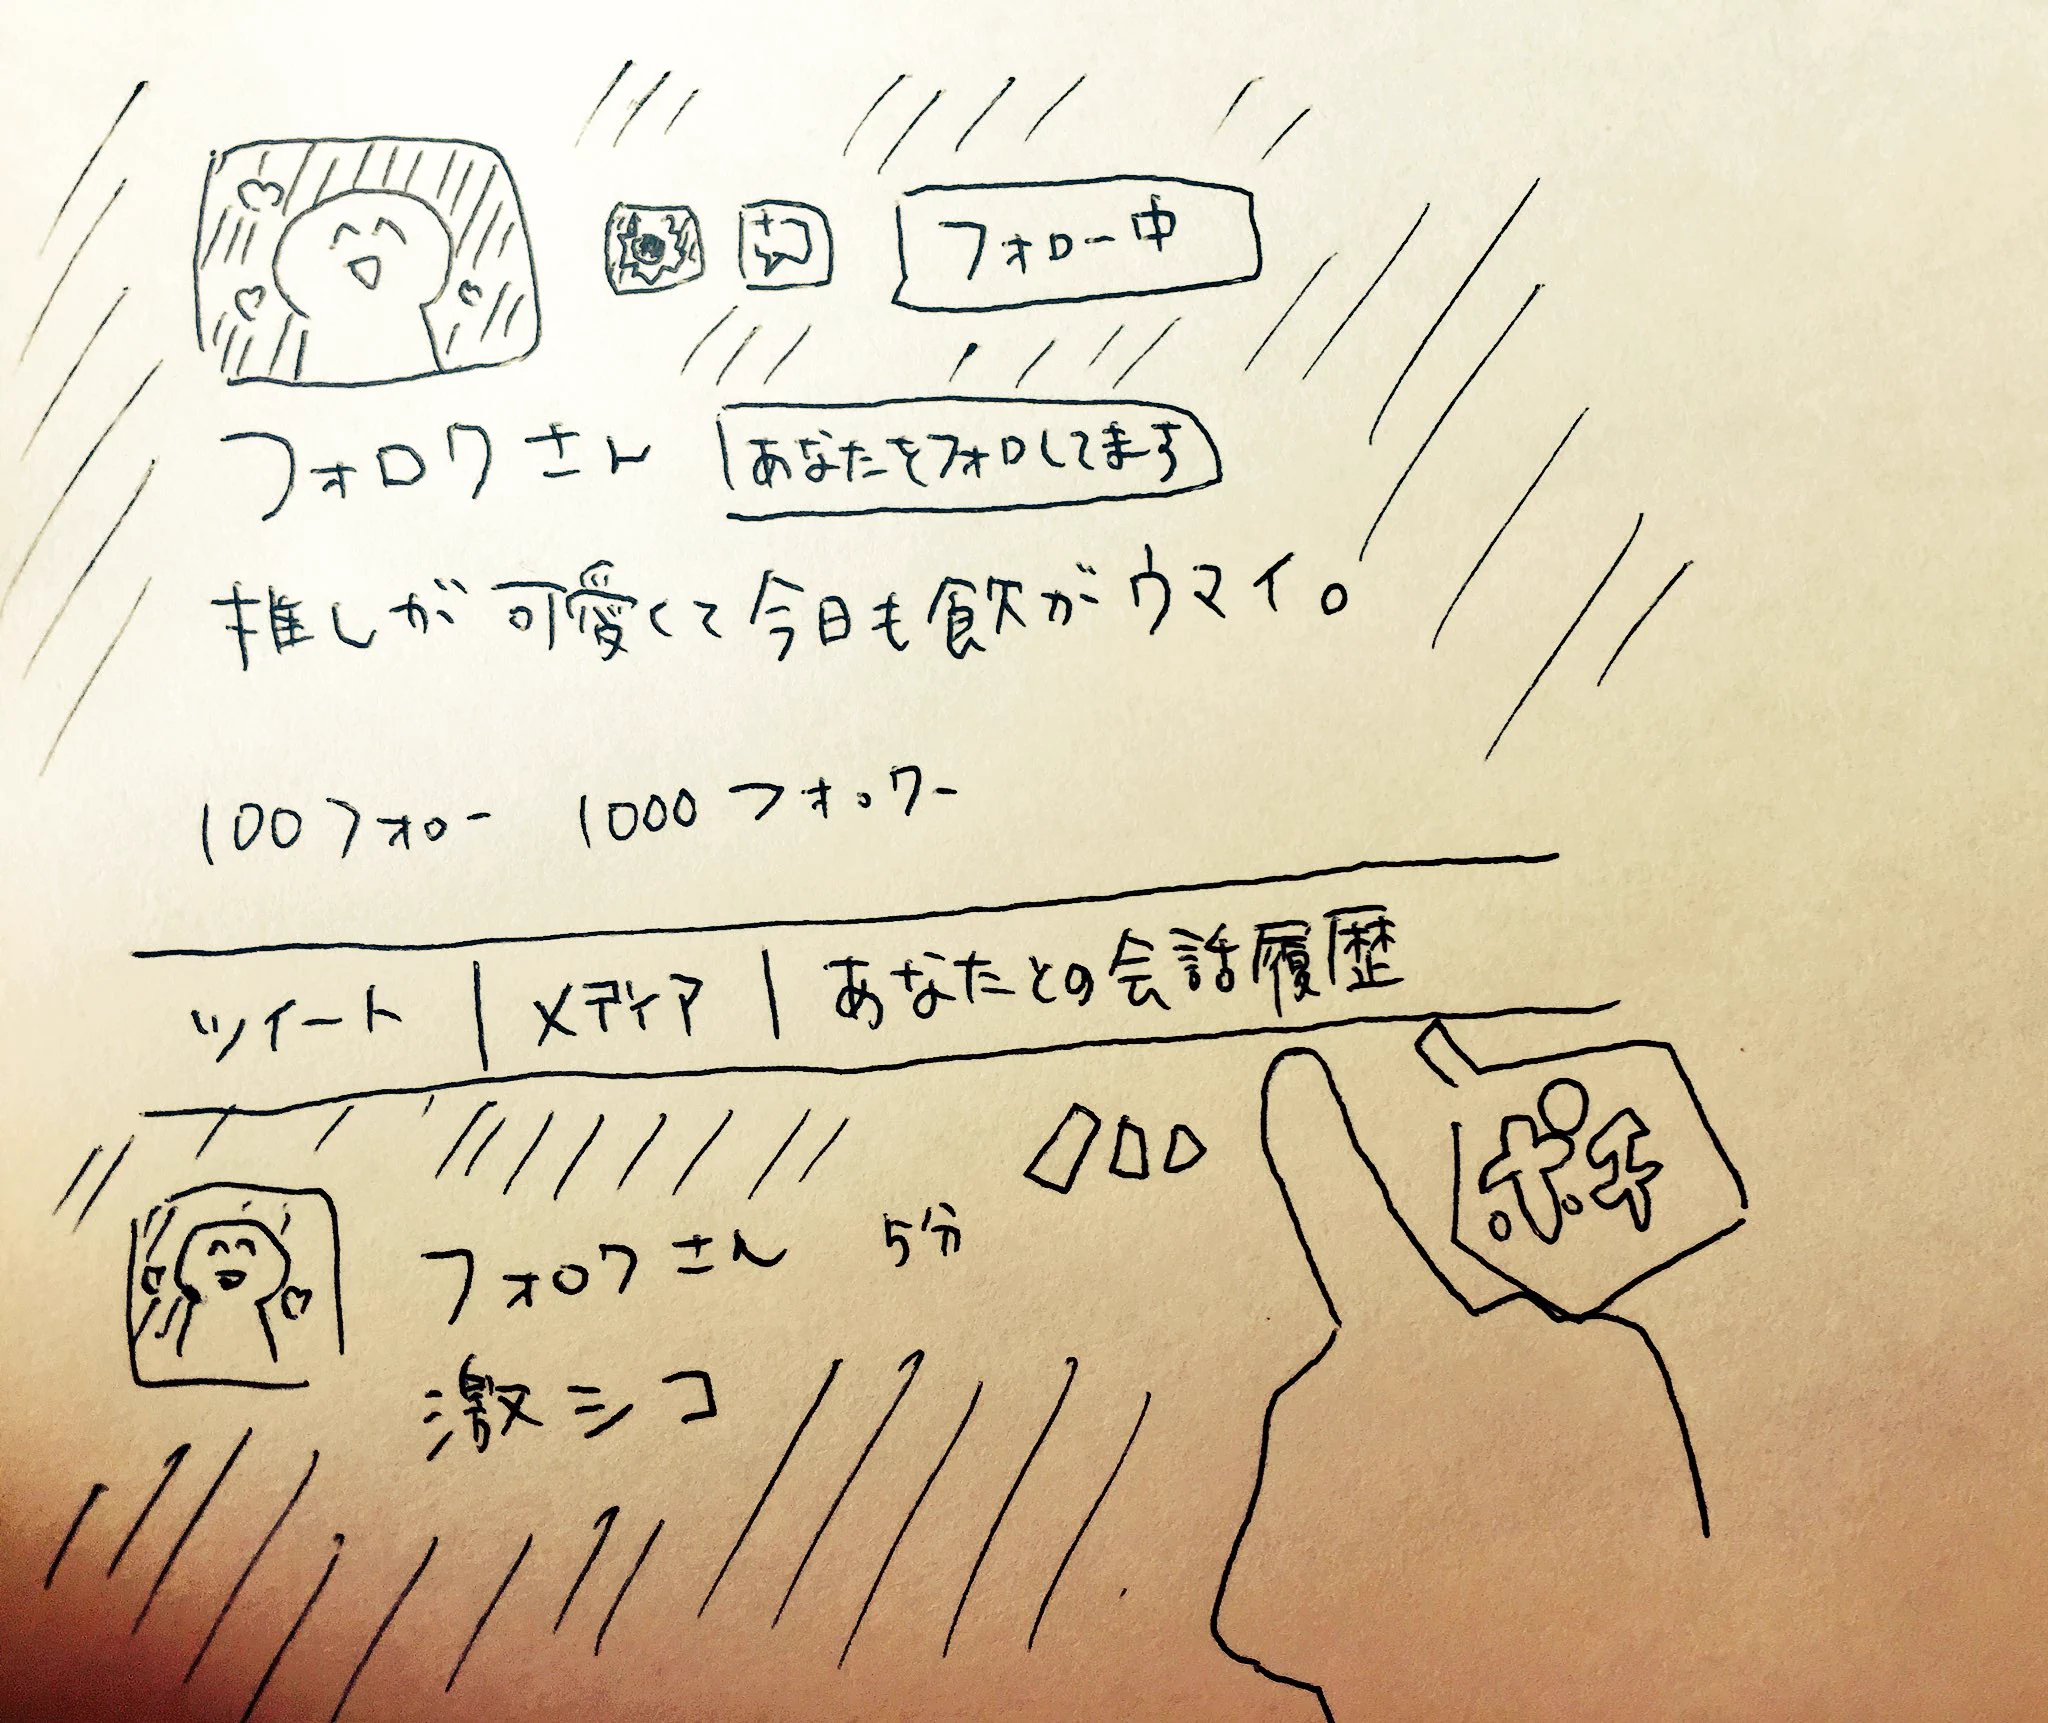 フォロー中
フォロワさん あなたをフォロしてます
推しが可愛くて今日も飲がウマイ。
100フォロー 1000フォロワー
ツイート | メディア | あなたとの会話履歴
ポチ
フォロワさん 5分
激シコ